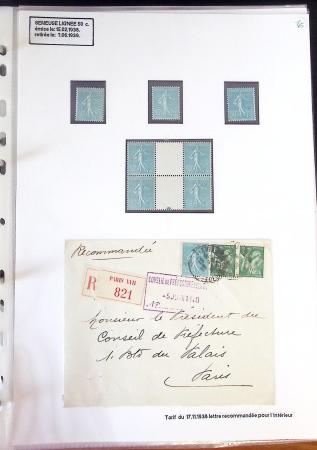 SEMEUSE LIGNEE 50 c.
émise le: 15.02.1938.
retirée le: 7.06.1939.
Recommandée
R
PARIS XVII
821
CONSEIL DE PRÉFECTURE
Monsieur le Président du
Conseil de Préfecture
1 Bd du Palais
Paris
Tarif du 17.11.1938 lettre recommandée pour l'intérieur